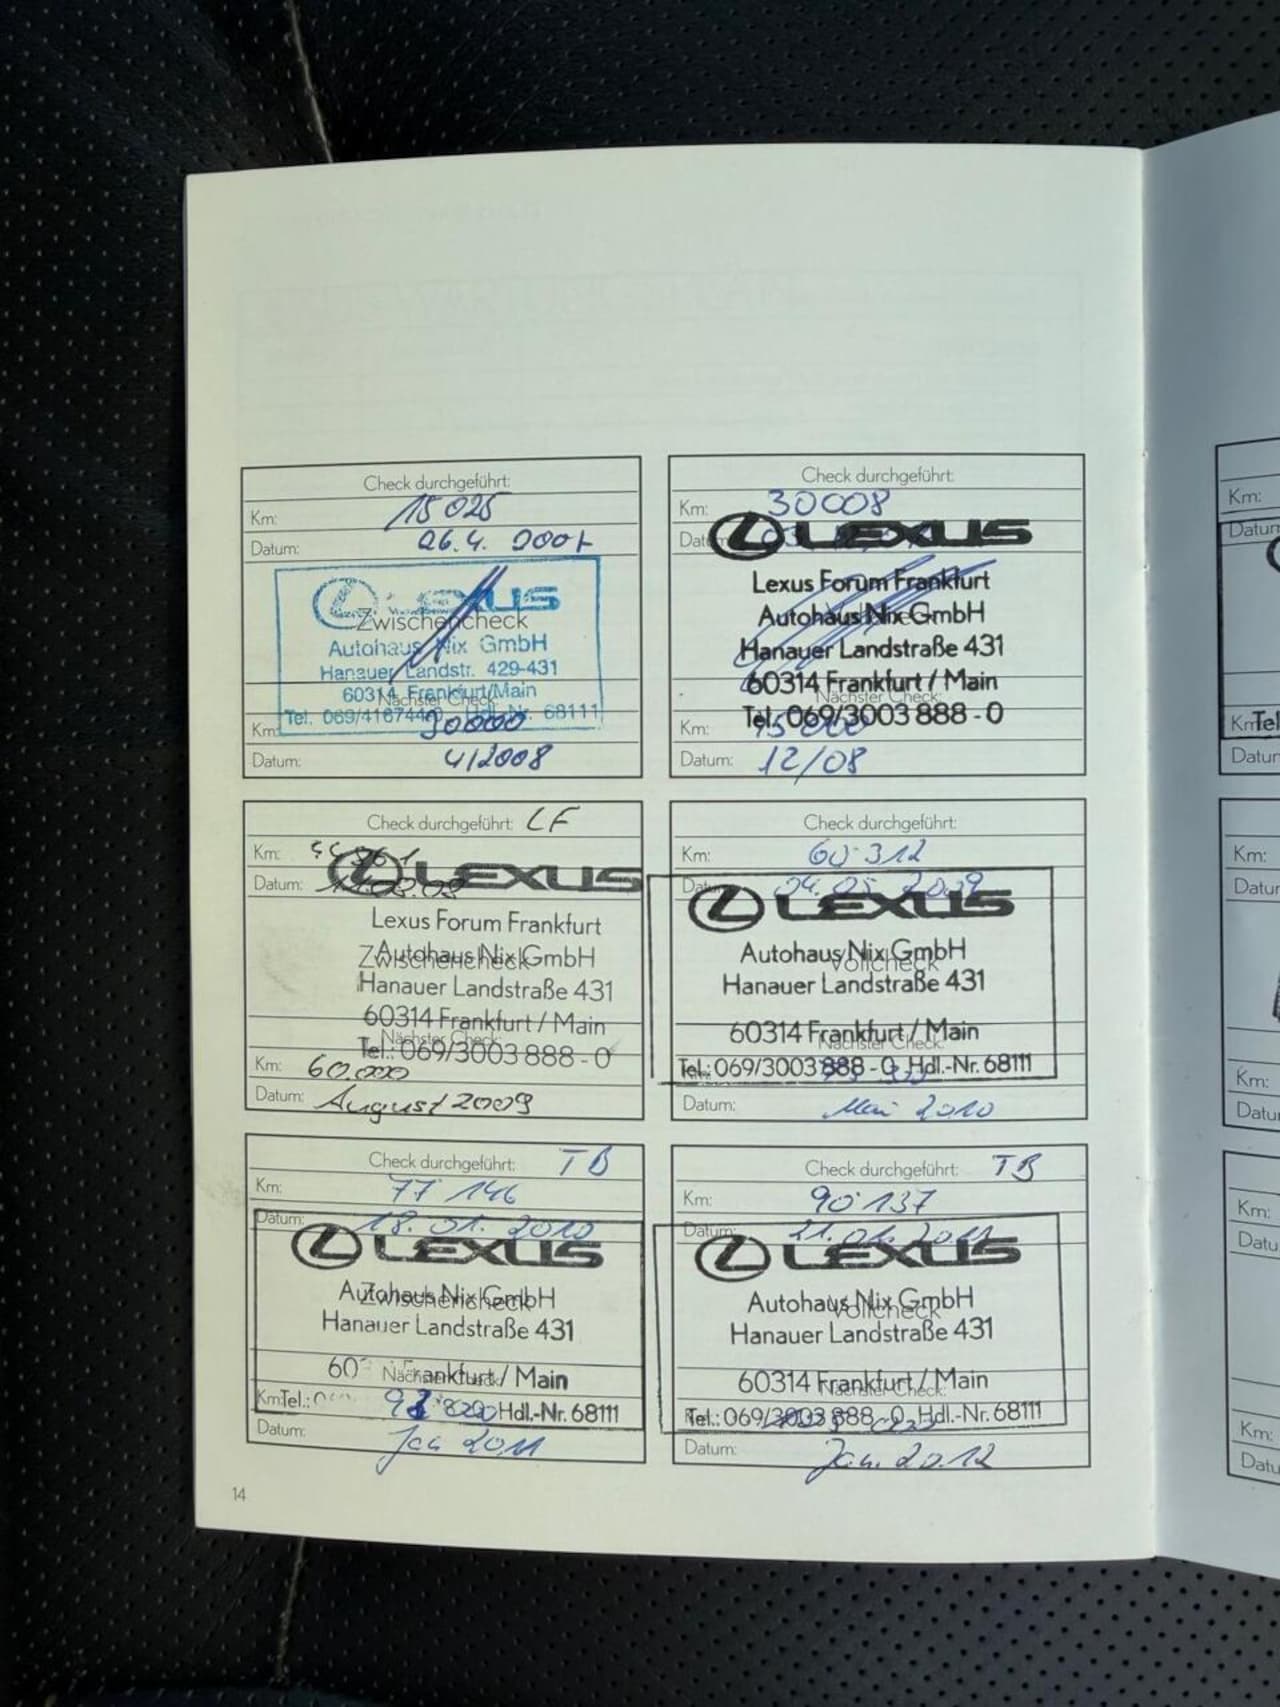 Check durchgeführt:
Km: 15 025
Datum: 26.4. 2007
LEXUS
Zwischencheck
Autohaus Nix GmbH
Hanauer Landstr. 429-431
60314 Frankfurt/Main
Nächster Check:
Tel. 069/4167440 Hdl. Nr. 68111
Km: 30000
Datum: 4/2008
Check durchgeführt:
Km: 30008
Datum:
LEXUS
Lexus Forum Frankfurt
Autohaus Nix GmbH
Hanauer Landstraße 431
60314 Frankfurt / Main
Nächster Check:
Tel.: 069/3003 888 - 0
Km: 45000
Datum: 12/08
Check durchgeführt: LF
Km:
Datum:
LEXUS
Lexus Forum Frankfurt
Zwischencheck
Autohaus Nix GmbH
Hanauer Landstraße 431
60314 Frankfurt / Main
Nächster Check:
Tel.: 069/3003 888 - 0
Km: 60.000
Datum: August 2009
Check durchgeführt:
Km: 60 312
Datum: 04.05 2009
LEXUS
Autohaus Nix GmbH
Vollcheck
Hanauer Landstraße 431
60314 Frankfurt / Main
Nächster Check:
Tel.: 069/3003 888 - 0 Hdl.-Nr. 68111
Datum: Mai 2010
Check durchgeführt: TB
Km: 77 146
Datum: 18. 01. 2010
LEXUS
Autohaus Nix GmbH
Zwischencheck
Hanauer Landstraße 431
60 Frankfurt / Main
Nächster Check:
Km: Tel.: Hdl.-Nr. 68111
Datum: Jan 2011
Check durchgeführt: TB
Km: 90 137
Datum: 21. 01. 2011
LEXUS
Autohaus Nix GmbH
Vollcheck
Hanauer Landstraße 431
60314 Frankfurt / Main
Nächster Check:
Tel.: 069/3003 888 - 0 Hdl.-Nr. 68111
Datum: Jan. 2012
14
Km:
Datum
Km: Tel
Datum
Km:
Datu
Km:
Datu
Km:
Datu
Km:
Datu